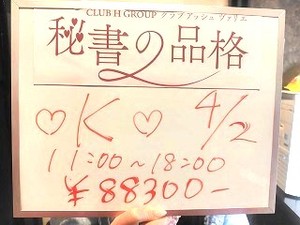 CLUB H GROUP クラブアッシュ ヴァリエ
秘書の品格
♡K♡ 4/2
11:00~18:00
¥88300-